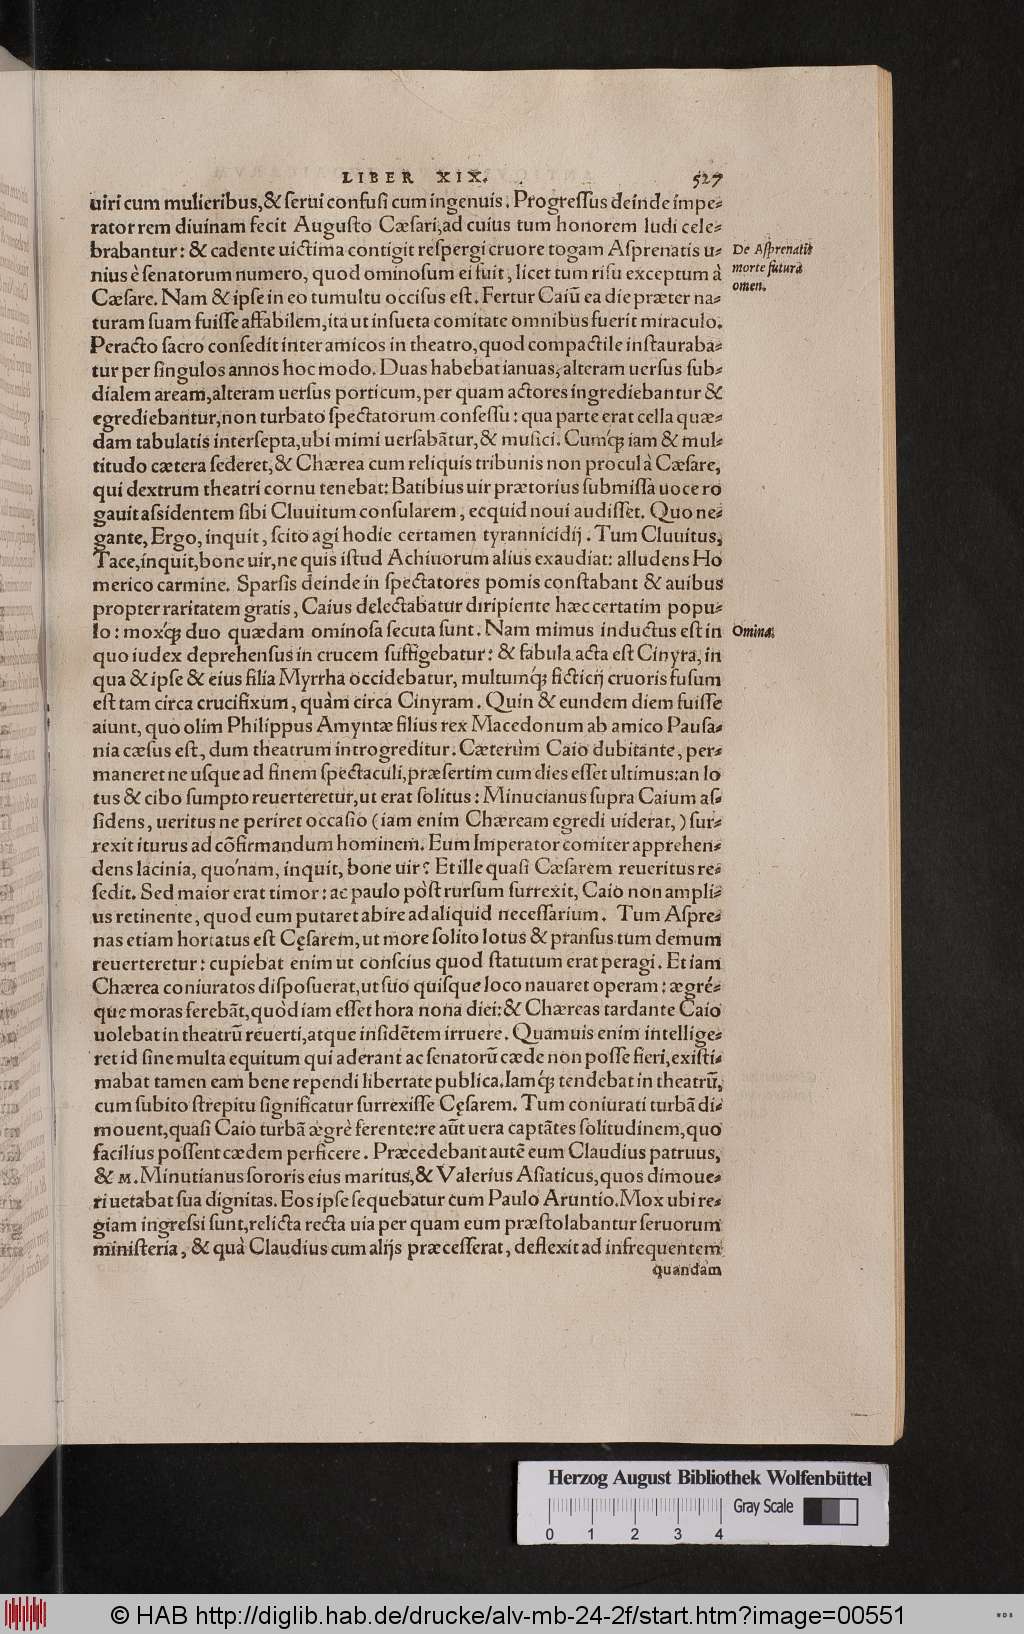 LIBER XIX. 527
uiri cum mulieribus,& ſerui confuſi cum ingenuis. Progreſſus deinde impe-
rator rem diuinam fecit Auguſto Cæſari,ad cuius tum honorem ludi cele-
brabantur: & cadente uictima contigit reſpergi cruore togam Aſprenatis u-
nius è ſenatorum numero, quod ominoſum ei fuit, licet tum riſu exceptum à
Cæſare. Nam & ipſe in eo tumultu occiſus eſt. Fertur Caiũ ea die præter na-
turam ſuam fuiſſe affabilem,ita ut inſueta comitate omnibus fuerit miraculo.
Peracto ſacro conſedit inter amicos in theatro,quod compactile inſtauraba-
tur per ſingulos annos hoc modo. Duas habebat ianuas,alteram uerſus ſub-
dialem aream,alteram uerſus porticum,per quam actores ingrediebantur &
egrediebantur,non turbato ſpectatorum conſeſſu: qua parte erat cella quæ-
dam tabulatis interſepta,ubi mimi uerſabãtur,& muſici. Cumq́ꝫ iam & mul-
titudo cætera ſederet,& Chærea cum reliquis tribunis non procul à Cæſare,
qui dextrum theatri cornu tenebat: Batibius uir prætorius ſubmiſſa uoce ro
gauit aſsidentem ſibi Cluuitum conſularem, ecquid noui audiſſet. Quo ne-
gante, Ergo, inquit, ſcito agi hodie certamen tyrannicidij. Tum Cluuitus,
Tace,inquit,bone uir,ne quis iſtud Achiuorum alius exaudiat: alludens Ho
merico carmine. Sparſis deinde in ſpectatores pomis conſtabant & auibus
propter raritatem gratis, Caius delectabatur diripiente hæc certatim popu-
lo: moxq́ꝫ duo quædam ominoſa ſecuta ſunt. Nam mimus inductus eſt in
quo iudex deprehenſus in crucem ſuffigebatur: & fabula acta eſt Cinyra, in
qua & ipſe & eius filia Myrrha occidebatur, multumq́ꝫ ficticij cruoris fuſum
eſt tam circa crucifixum, quàm circa Cinyram. Quin & eundem diem fuiſſe
aiunt, quo olim Philippus Amyntæ filius rex Macedonum ab amico Pauſa-
nia cæſus eſt, dum theatrum introgreditur. Cæterùm Caio dubitante, per-
maneret ne uſque ad finem ſpectaculi,præſertim cum dies eſſet ultimus:an lo
tus & cibo ſumpto reuerteretur,ut erat ſolitus: Minucianus ſupra Caium aſ-
ſidens, ueritus ne periret occaſio (iam enim Chæream egredi uiderat,) ſur-
rexit iturus ad cõfirmandum hominem. Eum Imperator comiter apprehen-
dens lacinia, quónam, inquit, bone uir? Et ille quaſi Cæſarem reueritus re-
ſedit. Sed maior erat timor: ac paulo pòſt rurſum ſurrexit, Caio non ampli-
us retinente, quod eum putaret abire ad aliquid neceſſarium. Tum Aſpre-
nas etiam hortatus eſt Cęſarem, ut more ſolito lotus & pranſus tum demum
reuerteretur: cupiebat enim ut conſcius quod ſtatutum erat peragi. Et iam
Chærea coniuratos diſpoſuerat,ut ſuo quiſque loco nauaret operam: ægré-
que moras ferebãt, quòd iam eſſet hora nona diei: & Chæreas tardante Caio
uolebat in theatrũ reuerti,atque inſidẽtem irruere. Quamuis enim intellige-
ret id ſine multa equitum qui aderant ac ſenatorũ cæde non poſſe fieri,exiſti-
mabat tamen eam bene rependi libertate publica. Iamq́ꝫ tendebat in theatrũ,
cum ſubito ſtrepitu ſignificatur ſurrexiſſe Cęſarem. Tum coniurati turbã di-
mouent,quaſi Caio turbã ægrè ferente:re aũt uera captãtes ſolitudinem,quo
facilius poſſent cædem perficere. Præcedebant autẽ eum Claudius patruus,
& M. Minutianus ſororis eius maritus,& Valerius Aſiaticus,quos dimoue-
ri uetabat ſua dignitas. Eos ipſe ſequebatur cum Paulo Aruntio. Mox ubi re-
giam ingreſſi ſunt,relicta recta uia per quam eum præſtolabantur ſeruorum
miniſteria, & quà Claudius cum alijs præceſſerat, deflexit ad infrequentem
quandam
De Aſprenatis
morte futura
omen.
Omina.
Herzog August Bibliothek Wolfenbüttel
Gray Scale
0 1 2 3 4
© HAB http://diglib.hab.de/drucke/alv-mb-24-2f/start.htm?image=00551